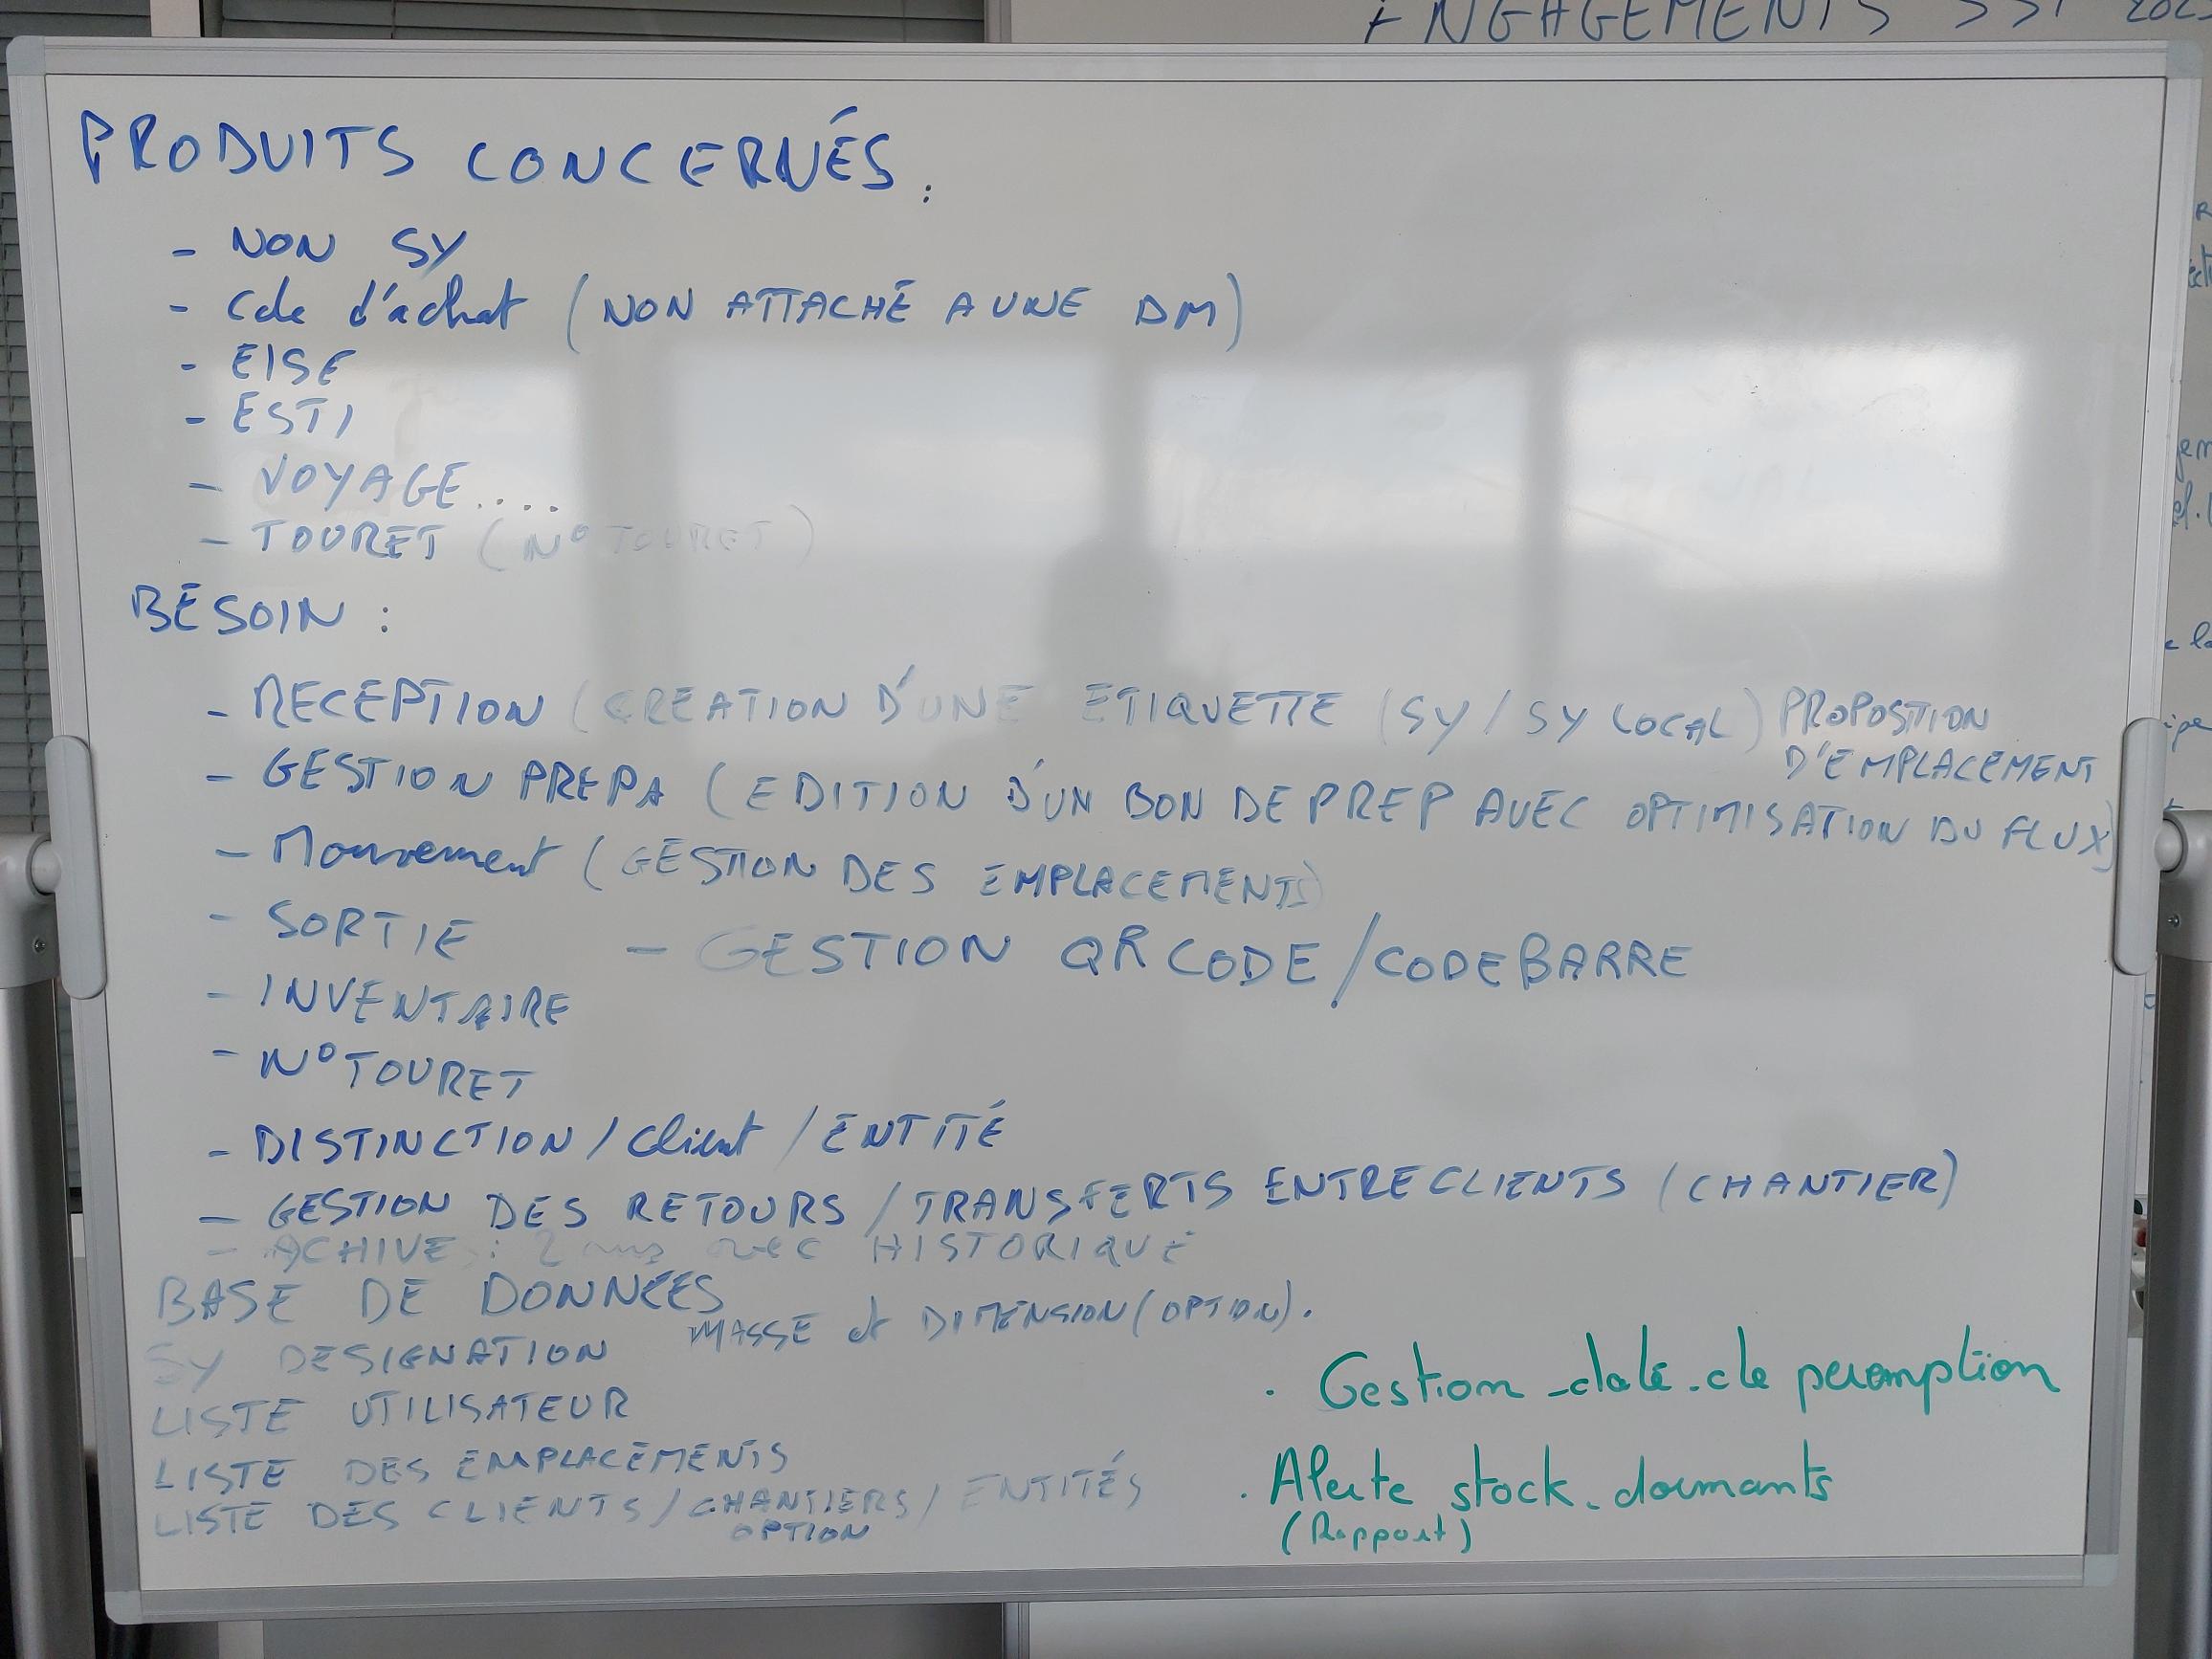 ENGAGEMENTS SST
PRODUITS CONCERNÉS :
- NON SY
- Cde d'achat (NON ATTACHÉ A UNE DM)
- EISE
- ESTI
- VOYAGE....
- TOURET (N° TOURET)
BESOIN :
- RECEPTION (CREATION D'UNE ETIQUETTE (SY/SY LOCAL) PROPOSTION
D'EMPLACEMENT
- GESTION PREPA (EDITION D'UN BON DE PREP AVEC OPTIMISATION DU FLUX)
- Mouvement (GESTION DES EMPLACEMENTS)
- SORTIE
- GESTION QR CODE/CODE BARRE
- INVENTAIRE
- N° TOURET
- DISTINCTION/Client/ENTITÉ
- GESTION DES RETOURS/TRANSFERTS ENTRE CLIENTS (CHANTIER)
- ACHIVE : 2 ans avec HISTORIQUE
BASE DE DONNÉES
SY DESIGNATION MASSE et DIMENSION (OPTION).
LISTE UTILISATEUR
LISTE DES EMPLACEMENTS
LISTE DES CLIENTS/CHANTIERS/ENTITÉS
OPTION
. Gestion date de peremption
. Alerte stock dormants
(Rapport)